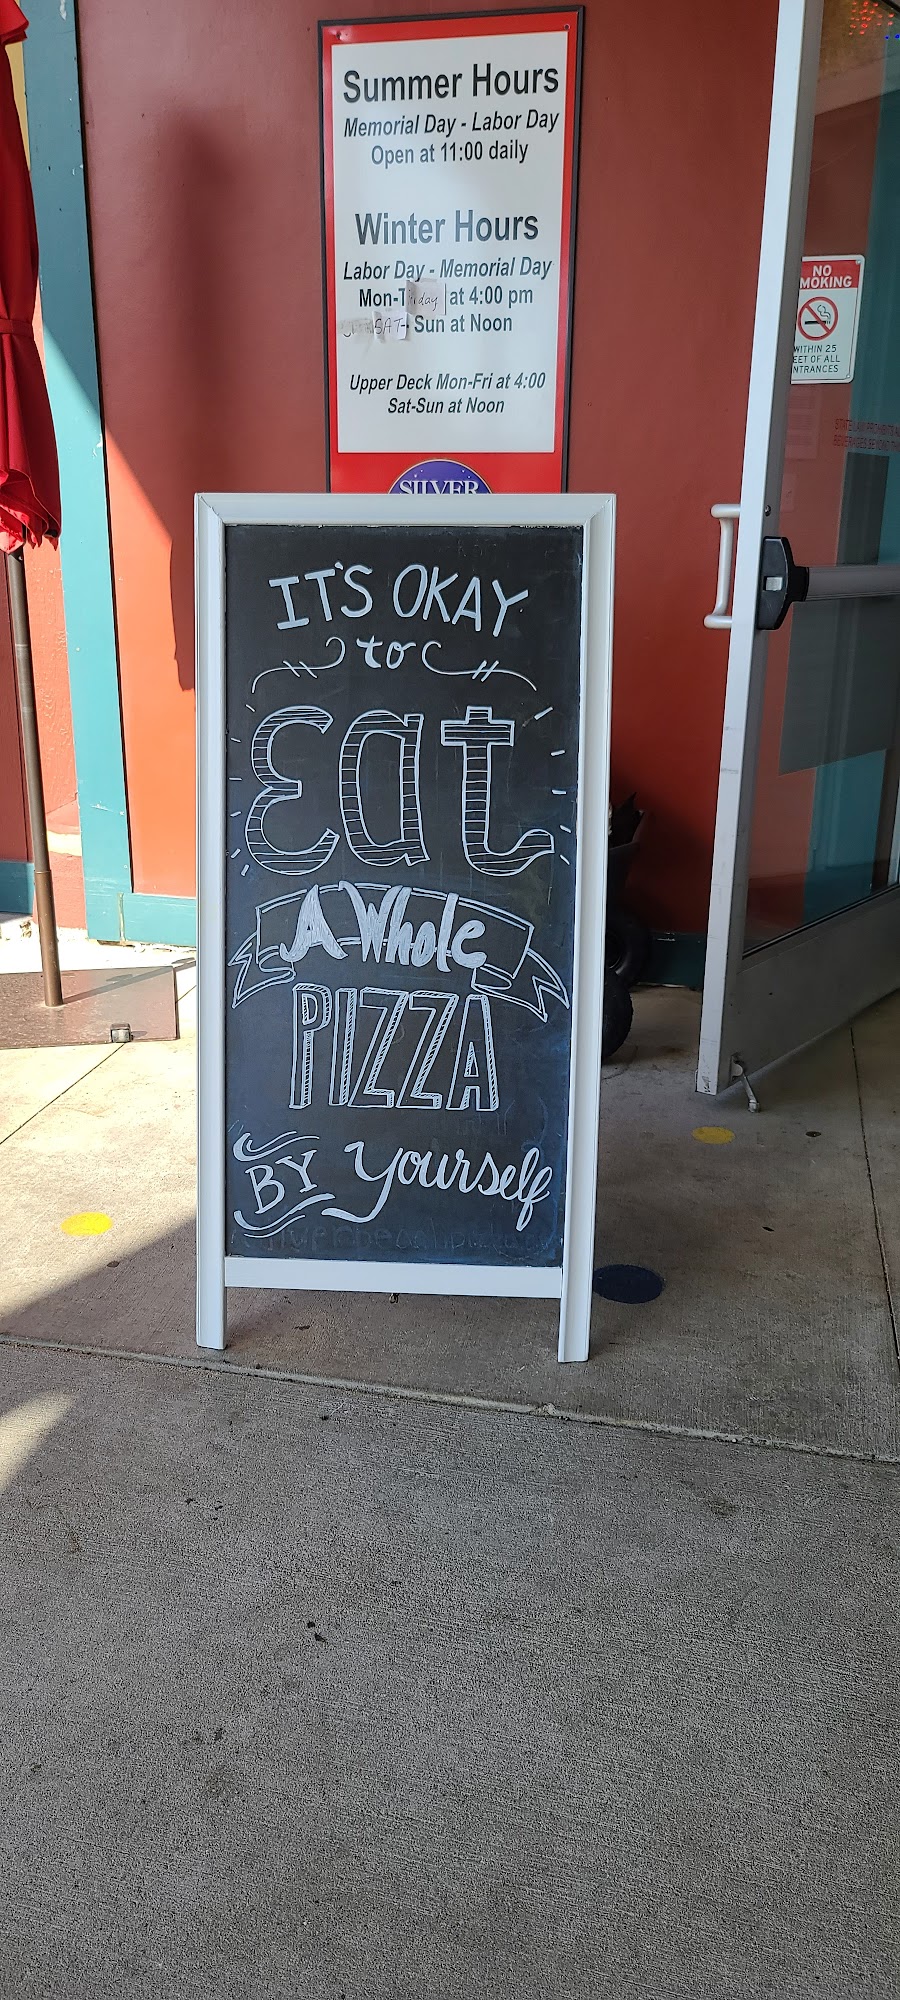 Summer Hours
Memorial Day - Labor Day
Open at 11:00 daily
Winter Hours
Labor Day - Memorial Day
Mon-Friday at 4:00 pm
SAT- Sun at Noon
Upper Deck Mon-Fri at 4:00
Sat-Sun at Noon
SILVER
NO
MOKING
WITHIN 25
EET OF ALL
NTRANCES
IT'S OKAY
to
Eat
A Whole
PIZZA
BY Yourself